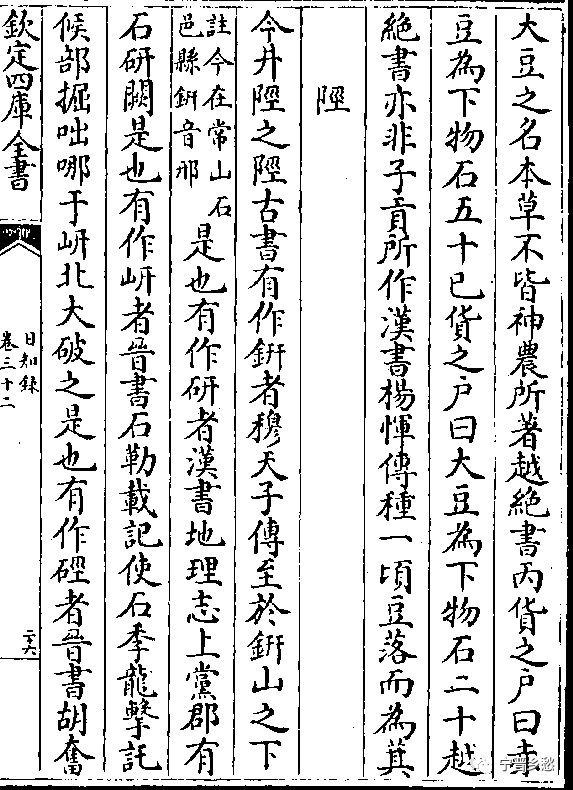 大豆之名本草不皆神農所著越絶書丙貨之户曰赤
豆為下物石五十已貨之户曰大豆為下物石二十越
絶書亦非子貢所作漢書楊惲傳種一頃豆落而為萁
陘
今井陘之陘古書有作鈃者穆天子傳至於鈃山之下
註今在常山石
邑縣鈃音邢
是也有作研者漢書地理志上黨郡有
石研關是也有作岍者晉書石勒載記使石季龍擊託
候部掘咄哪于岍北大破之是也有作硜者晉書胡奮
欽定四庫全書
日知錄
卷三十二
二六
宁晋乡愁